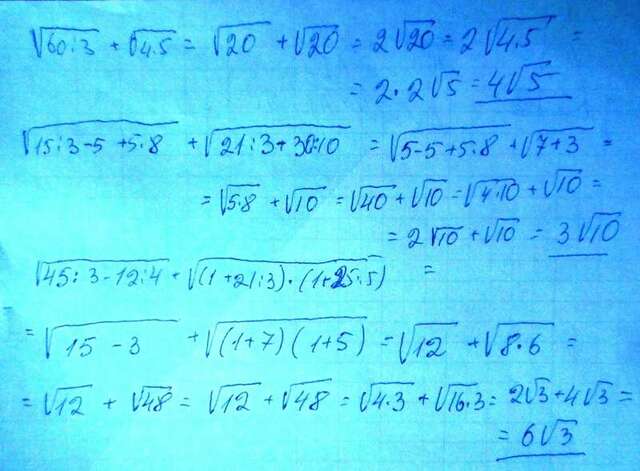 √60:3 + √4·5 = √20 + √20 = 2√20 = 2√4·5 =
= 2·2√5 = 4√5
√15:3-5+5·8 + √21:3+30:10 = √5-5+5·8 + √7+3 =
= √5·8 + √10 = √40 + √10 = √4·10 + √10 =
= 2√10 + √10 = 3√10
√45:3-12:4 + √(1+21:3)·(1+25:5) =
= √15-3 + √(1+7)(1+5) = √12 + √8·6 =
= √12 + √48 = √12 + √48 = √4·3 + √16·3 = 2√3+4√3 =
= 6√3